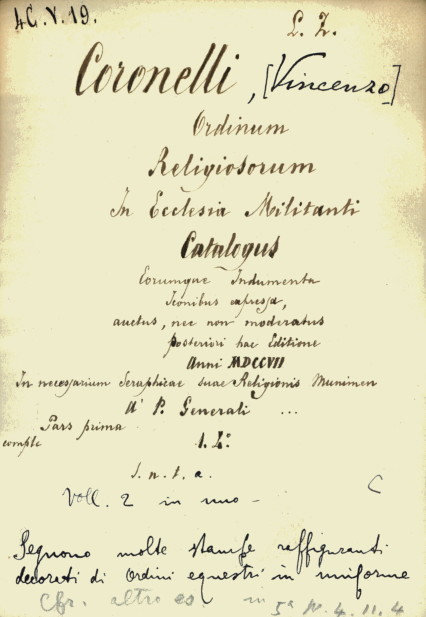 4G. V. 19.
L. Z.
Coronelli, [Vincenzo]
Ordinum
Religiosorum
In Ecclesia Militanti
Catalogus
Eorumque Indumenta
Iconibus expressa,
auctus, nec non moderatus
posteriori hac Editione
Anni MDCCVII
In necessarium Seraphicae suae Religionis Munimen
A' P. Generali ...
Pars prima
comple
1. 4.º
S. n. t. a.
Voll. 2 in uno -
C
Seguono molte stampe raffiguranti
decorati di Ordini equestri in uniforme
Cfr. altro es in 5ª IV. 4. 11. 4